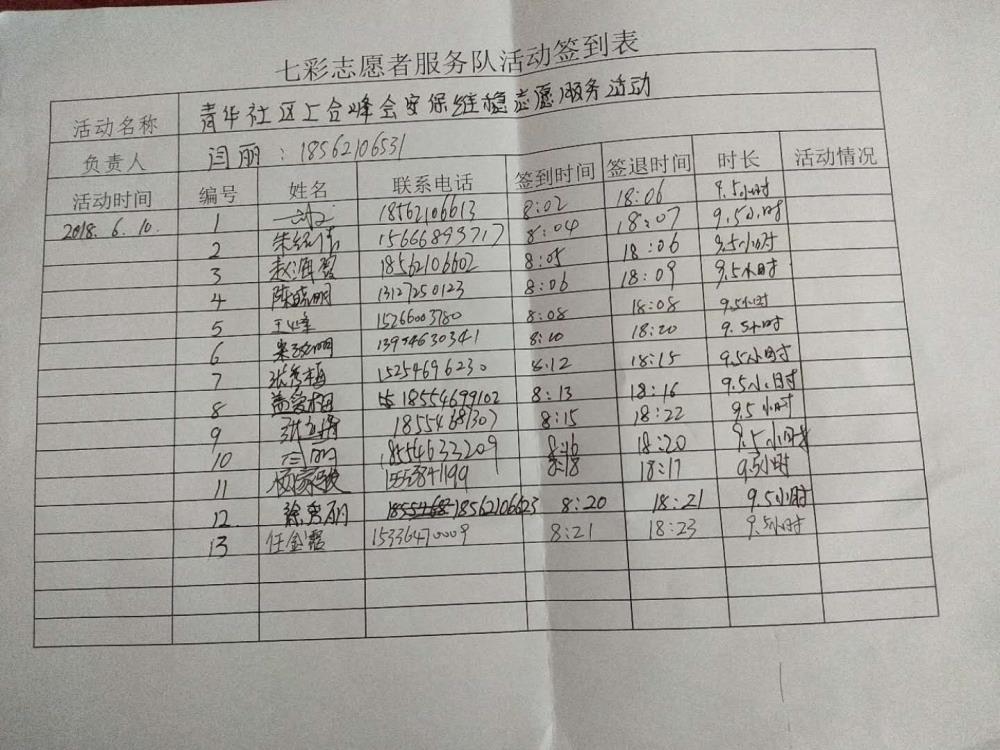 七彩志愿者服务队活动签到表
活动名称 青华社区上合峰会安保维稳志愿服务活动
负责人 闫丽：18562106531
活动时间 编号 姓名 联系电话 签到时间 签退时间 时长 活动情况
2018.6.10. 1 18562106613 8:02 18:06 9.5小时
2 15666893717 8:04 18:07 9.5小时
3 赵海霞 18562106602 8:05 18:06 9.5小时
4 陈晓明 13127250123 8:06 18:09 9.5小时
5 王峰 15266003780 8:08 18:08 9.5小时
6 13954630341 8:10 18:20 9.5小时
7 张秀梅 15254696230 8:12 18:15 9.5小时
8 18554699102 8:13 18:16 9.5小时
9 18554681307 8:15 18:22 9.5小时
10 闫丽 18554633209 8:16 18:20 9.5小时
11 8:18 18:17 9.5小时
12 徐秀丽 18562106623 8:20 18:21 9.5小时
13 任金霞 15336470009 8:21 18:23 9.5小时